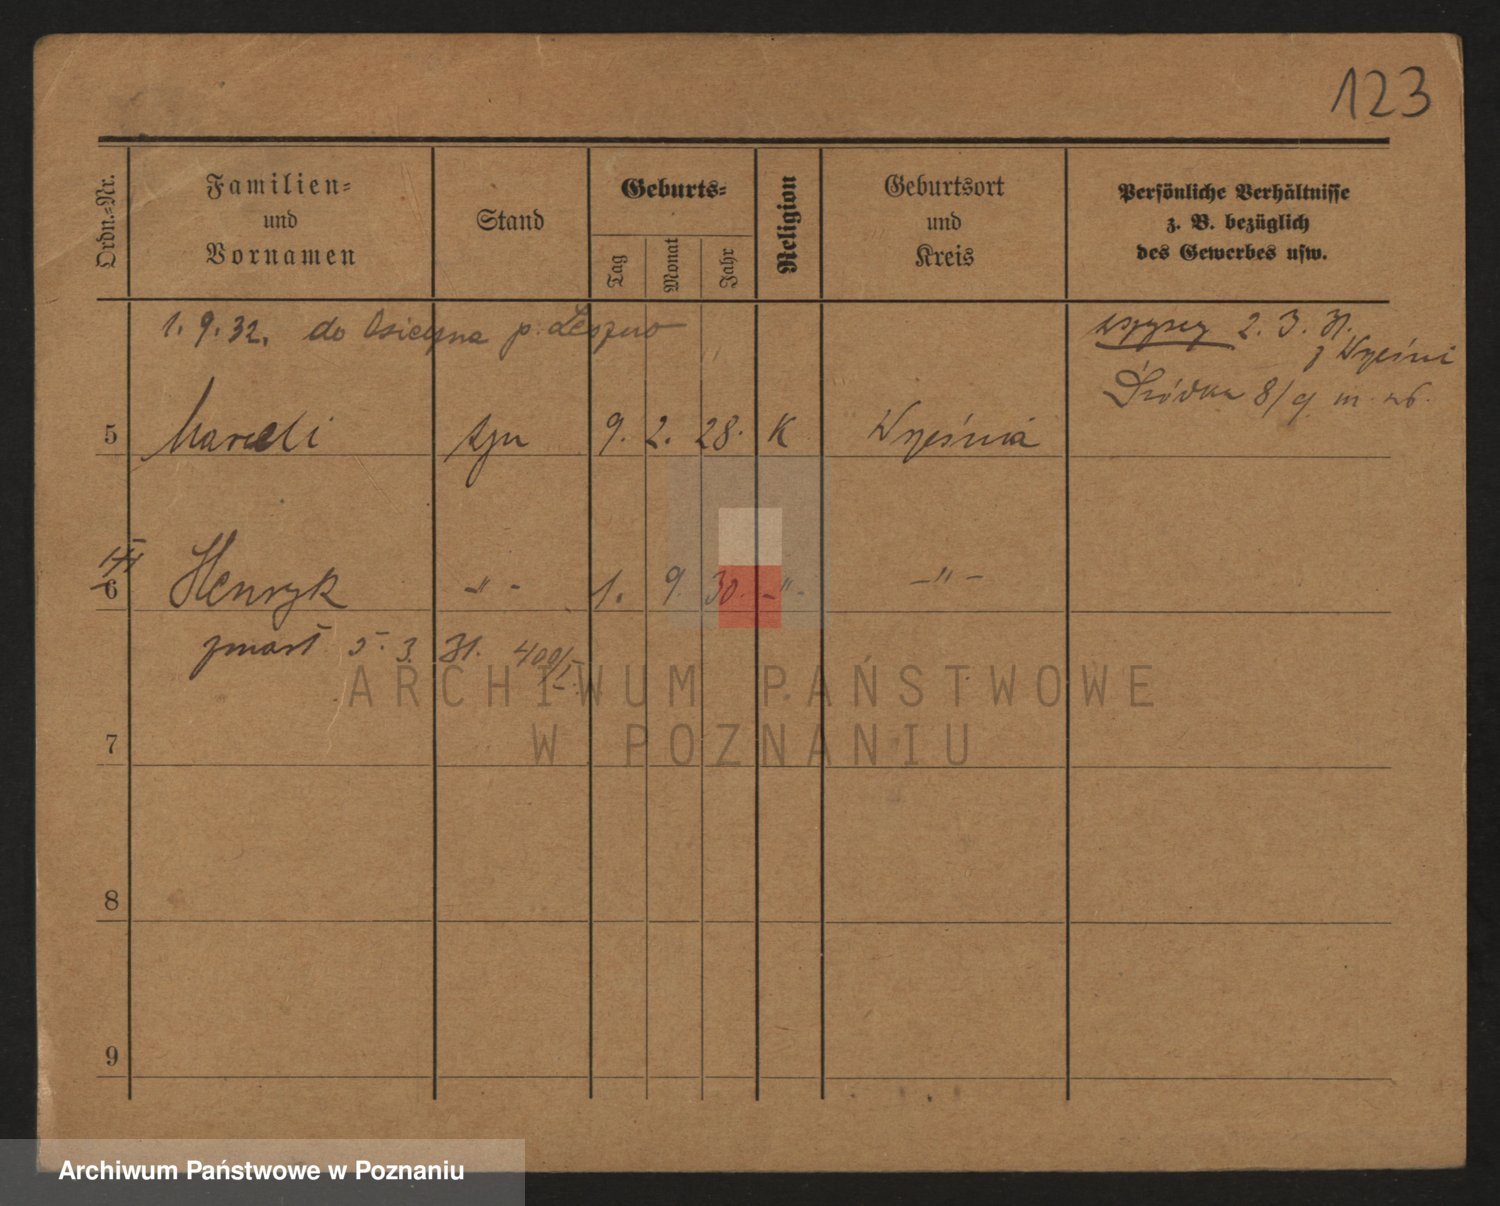 123
Ordn.-Nr.
Familien-
und
Vornamen
Stand
Geburts-
Tag
Monat
Jahr
Religion
Geburtsort
und
Kreis
Persönliche Verhältnisse
z. B. bezüglich
des Gewerbes usw.
1. 9. 32. do Osieczna p. Leszno
wszyscy 2. 3. 31.
z Wrześni
Śródka 8/9 m.
5 Marceli syn 9. 2. 28. K Września
6 Henryk -"- 1. 9. 30. -"- -"-
zmarł 5. 3. 31. 400/I
7
8
9
ARCHIWUM PAŃSTWOWE
W POZNANIU
Archiwum Państwowe w Poznaniu